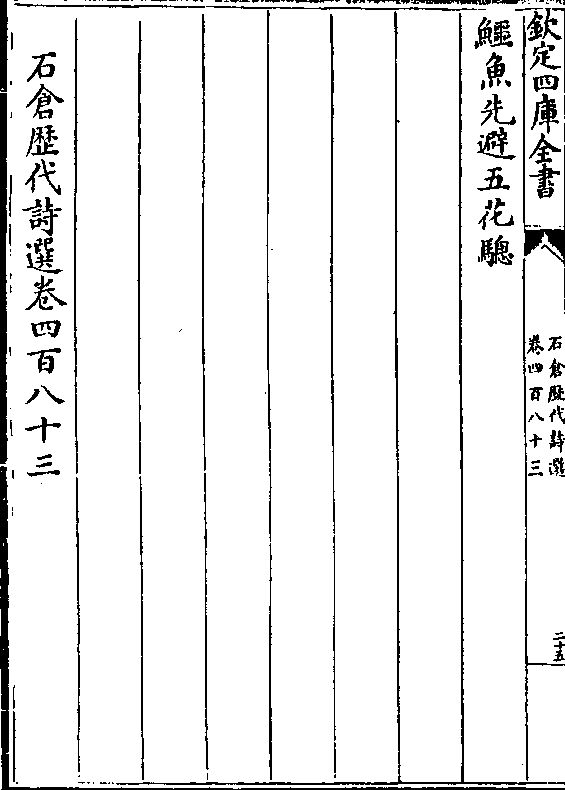 欽定四庫全書
石倉歷代詩選
卷四百八十三
二十五
鱷魚先避五花驄
石倉歷代詩選卷四百八十三